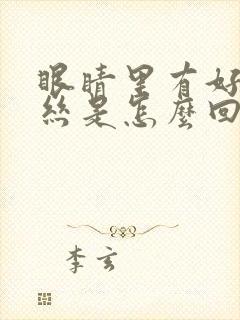 眼睛里有好
丝是怎麽回
李玄